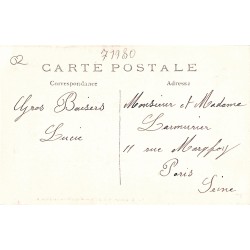 71980
CARTE POSTALE
Correspondance
Adresse
Gros Baisers
Lucie
Monsieur et Madame
Larmurier
11 rue
Paris
Seine